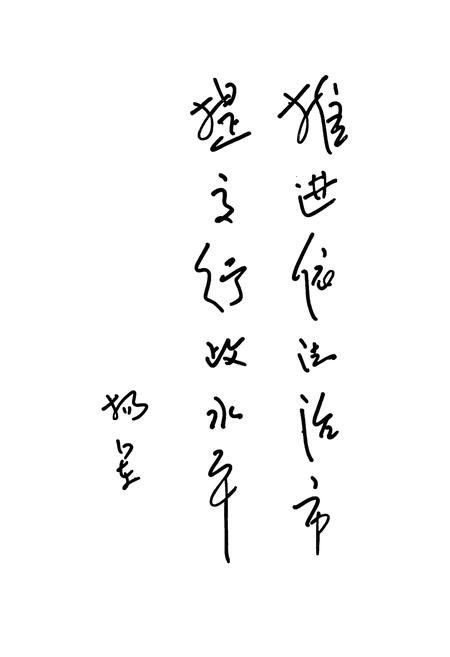 推进依法治市
提高行政水平